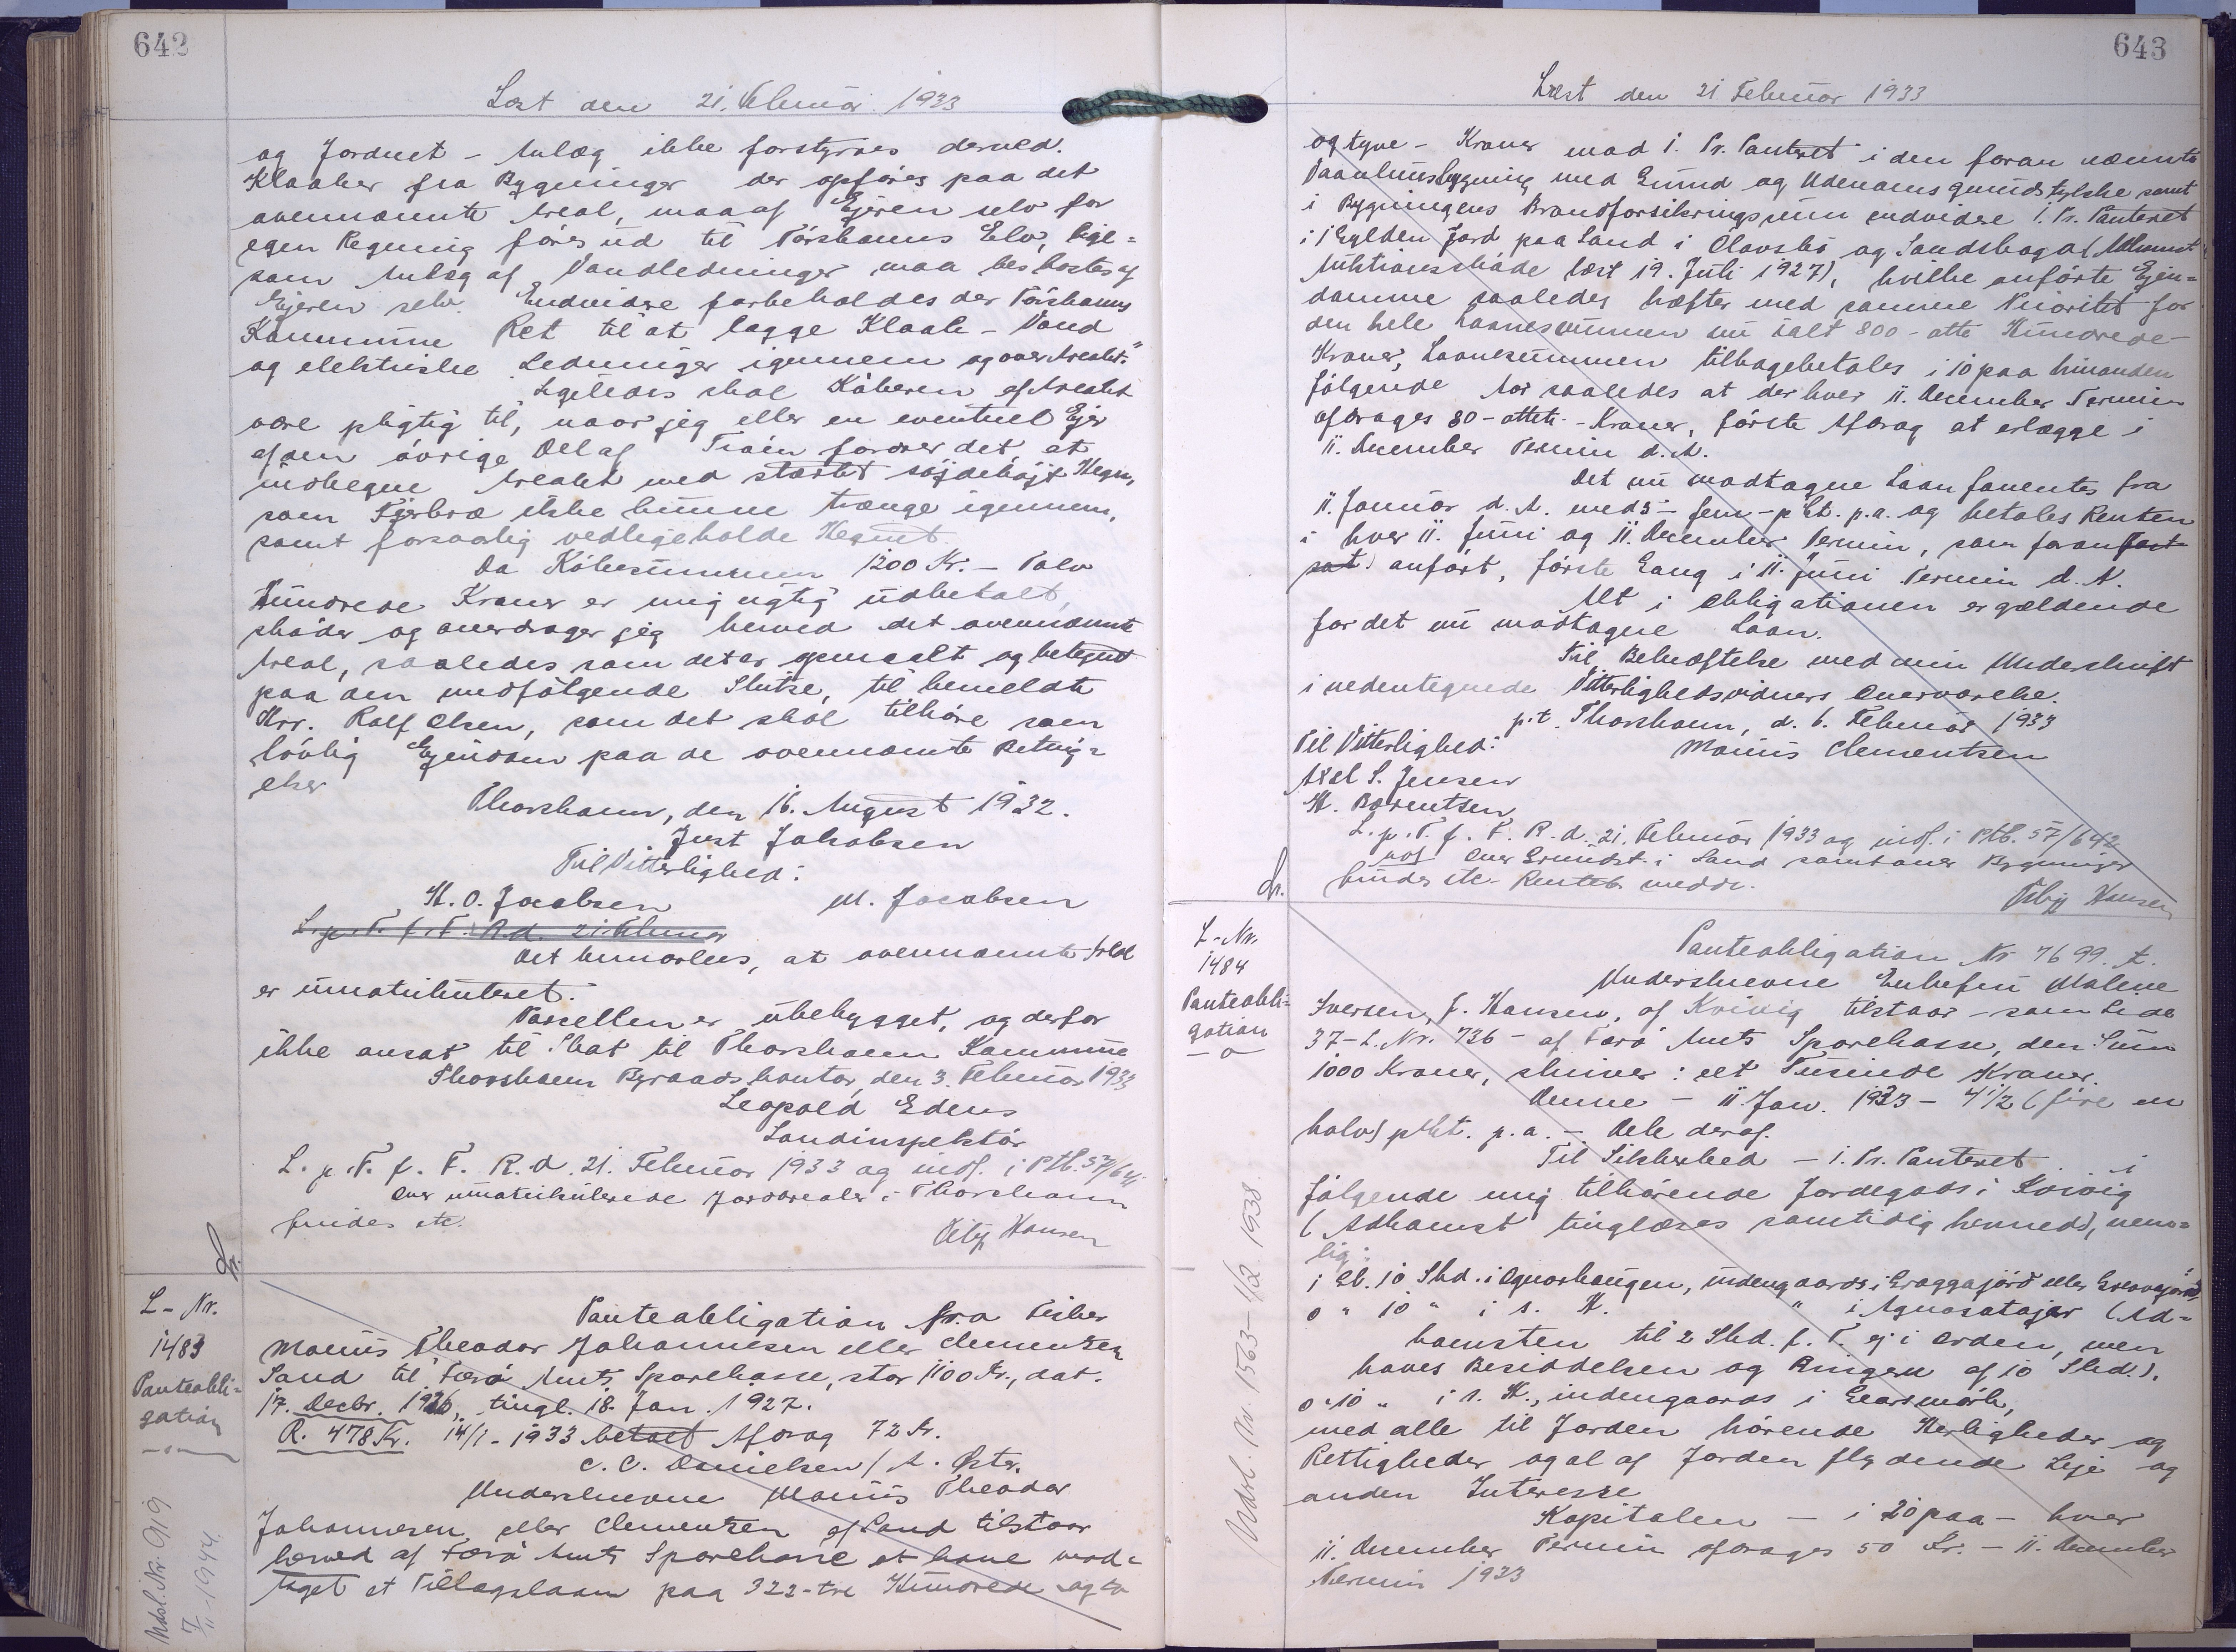 642
Læst den 21. Februar 1933
og Jordnet - Anlæg ikke forstyrres derved.
Kloaker fra Bygninger der opføres paa det
ovennævnte Areal, maa af Ejeren selv for
egen Regning føres ud til Tórshavns Elv, lige=
som Anlæg af Vandledninger maa bekostes af
Ejeren selv. Endvidere forbeholdes der Tórshavns
Kommune Ret til at lægge Kloak- Vand
og elektriske Ledninger igennem og over Arealet."
Ligeledes skal Køberen af Arealet
være pligtig til, naar jeg eller en eventuel Ejer
af den øvrige Del af Trøin fordrer det, at
indhegne Arealet med stærkt Hegn,
som Fjerkræ ikke kunne trænge igennem,
samt forsvarlig vedligeholde Hegnet.
Da Købesummen 1200 Kr. - Tolv
Hundrede Kroner er mig rigtig udbetalt,
skøder og overdrager jeg herved det ovennævnte
Areal, saaledes som det er opmaalt og betegnet
paa den medfølgende Skitse, til bemeldte
Hrr. Rolf Olsen, som det skal tilhøre som
lovlig Ejendom paa de ovennævnte Beting=
elser
Thorshavn, den 16. August 1932.
Just Jakobsen
Til Vitterlighed:
H. O. Jacobsen M. Jacobsen
L. p. T. f. F. R. d. 21. Februar
Det bemærkes, at ovennævnte Areal
er umatrikuleret.
Parcellen er ubebygget, og derfor
ikke ansat til Skat til Thorshavn Kommune
Thorshavn Byraadskontor, den 3. Februar 1933
Leopold Edens
Landinspektør
L. p. T. f. F. R. d. 21. Februar 1933 og indf. i Ptb. 57/641
Over umatrikulerede Jordarealer i Thorshavn
findes etc.
Hansen
L- Nr.
1483
Panteobli=
gation
Udsl. Nr. 919
7/11-1944.
Panteobligation fra Fisker
Maurus Theodor Johannesen eller Clementsen
Sand til Færø Amts Sparekasse, stor 1100 Kr., dat.
17. Decbr. 1926, tingl. 18. Jan. 1927.
R. 478 Kr. 14/1-1933 betalt Afdrag 72 Kr.
C. C. Danielsen / A. Østr.
Underskrevne Maurus Theodor
Johannesen eller Clementsen af Sand tilstaar
herved af Færø Amts Sparekasse at have mod=
taget et Tillægslaan paa 322- tre Hundrede og to
643
Læst den 21 Februar 1933
og tyve - Kroner mod 1. Pr. Panteret i den foran nævnte
Vaaningsbygning med Grund og Udenomsgrundstykke samt
i Bygningens Brandforsikringssum endvidere 1. Pr. Panteret
i 1 Gylden Jord paa Sand i Olavsbø og Sandshaga (Adkomst
Auktionsskøde læst 19. Juli 1927), hvilke anførte Ejen=
domme saaledes hæfter med samme Prioritet for
den hele Laanesummen nu ialt 800 - otte Hundrede -
Kroner, Laanesummen tilbagebetales i 10 paa hinanden
følgende Aar saaledes at der hver 11. December Termin
afdrages 80 - otteti - Kroner, første Afdrag at erlægge i
11. December Termin d. A.
Det nu modtagne Laan forrentes fra
11. Januar d. A. med 5 - fem - pCt. p. a. og betales Renten
i hver 11. Juni og 11. December Termin, som foran fast
sat anført, første Gang i 11. Juni Termin d. A.
Alt i Obligationen er gældende
for det nu modtagne Laan.
Til Bekræftelse med min Underskrift
i nedentegnede Vitterlighedsvidners Overværelse.
p.t. Thorshavn, d. 6. Februar 1933
Til Vitterlighed: Maurus Clementsen
Axel S. Jensen
H. Berentsen
L. p. T. f. F. R. d. 21. Februar 1933 og indf. i Ptb. 57/642
Over Grundst. i Sand samt over Bygninger
findes etc. Renteb. meddr.
Hansen
L- Nr.
1484
Panteobli=
gation
Udsl. Nr. 1563 - 1/2 1938
Panteobligation Nr 7699. A.
Underskrevne Enkefru Malene
Iversen, f. Hansen, af Kvivig tilstaar - som Lide
37 - L. Nr. 736 - af Færø Amts Sparekasse, den Sum
1000 Kroner, skriver: et Tusinde Kroner.
Denne - 11. Jan. 1933 - 4 1/2 (fire en
halv) pCt. p. a. - Dele deraf.
Til Sikkerhed - 1. Pr. Panteret i
følgende mig tilhørende Jordegods i Kvivig
(Adkomst tinglæses samtidig hermed), nem=
lig:
1 Gl. 10 Skd. i Ognarhaugen, indengaards i
0 " 10 " i s. H. " i (Ad=
komsten til 2 Skd. f. T. ej i Orden, men
haves Besiddelsen og Brugen af 10 Skd.).
0 " 10 " i s. H., indengaards i
med alle til Jorden hørende Herligheder og
Rettigheder og al af Jorden flydende Leje og
anden Interesse
Kapitalen - i 20 paa - hver
11. December Termin afdrages 50 Kr. - 11. December
Termin 1933